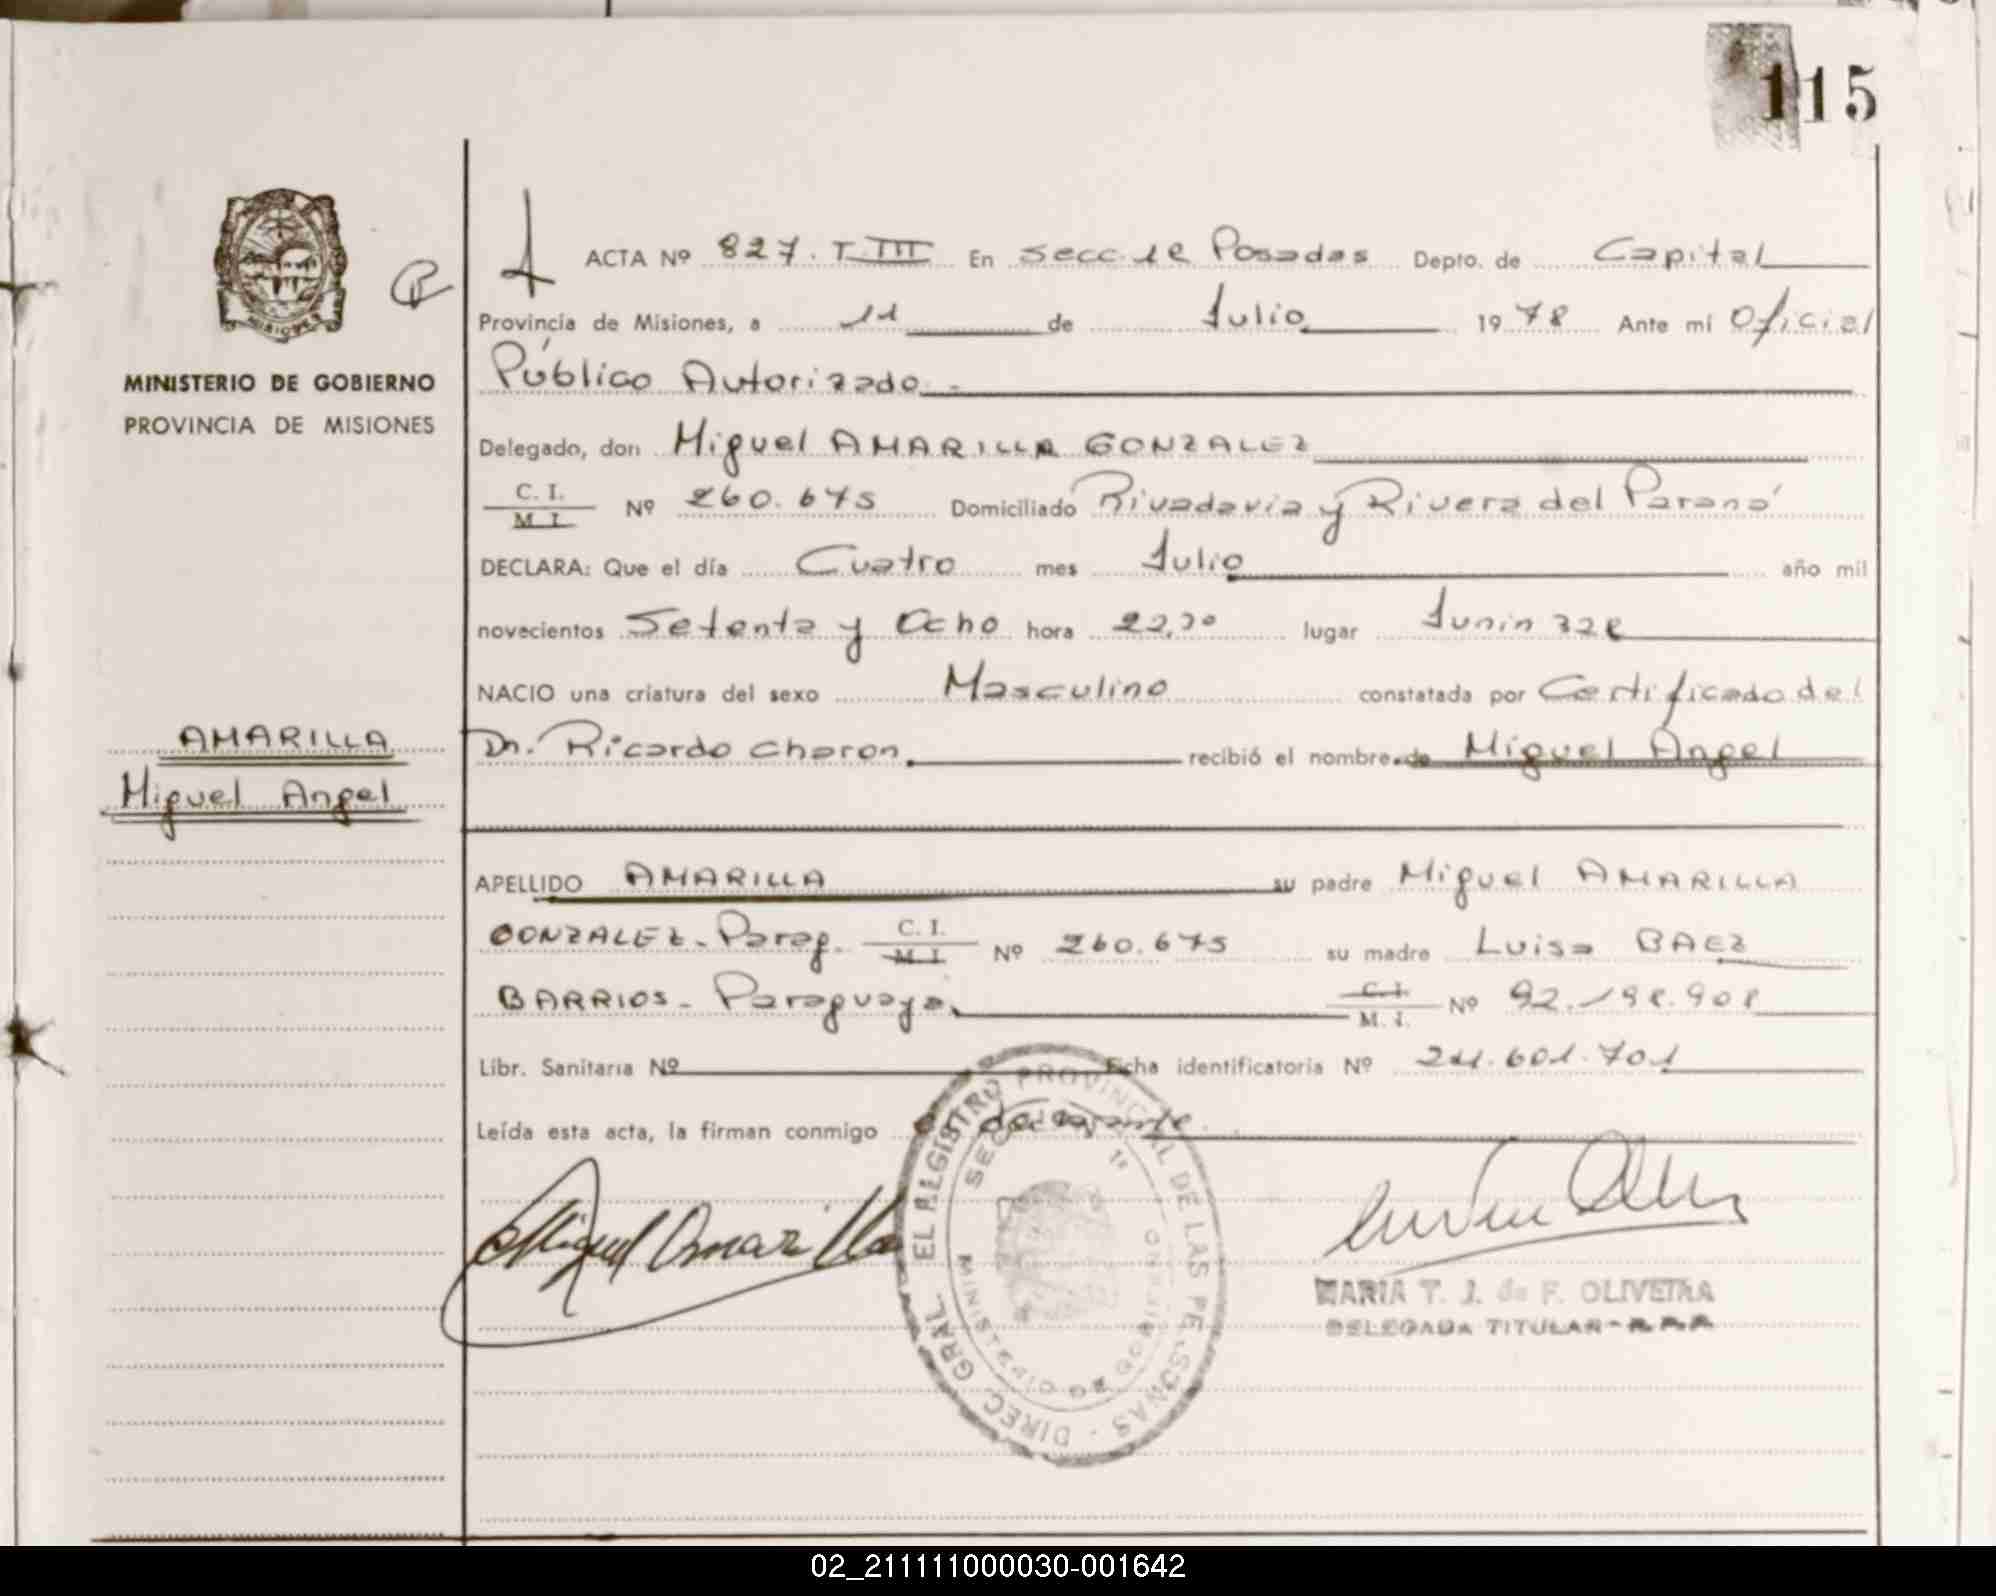 115
MISIONES
MINISTERIO DE GOBIERNO
PROVINCIA DE MISIONES
AMARILLA
Miguel Angel
ACTA Nº 827. T.III En secc 1e Posadas Depto. de Capital
Provincia de Misiones, a 11 de Julio 1978 Ante mí Oficial
Público Autorizado.-
Delegado, don Miguel AMARILLA GONZALEZ
C. I. M. I. Nº 260.675 Domiciliado Rivadavia y Rivera del Paraná
DECLARA: Que el día Cuatro mes Julio año mil
novecientos Setenta y Ocho hora 22,30 lugar Junin 328
NACIO una criatura del sexo Masculino constatada por Certificado del
Dr. Ricardo Charon, recibió el nombre de Miguel Angel
APELLIDO AMARILLA su padre Miguel AMARILLA
GONZALEZ - Parag. C. I. M. I. Nº 260.675 su madre Luisa BAEZ
BARRIOS - Paraguaya, C. I. M. I. Nº 92.198.908
Libr. Sanitaria Nº Ficha identificatoria Nº 24.601.701
Leída esta acta, la firman conmigo el declarante.
Miguel Amarilla
DIREC. GRAL. EL REGISTRO PROVINCIAL DE LAS PERSONAS
SECC 1ª
MINISTERIO DE GOBIERNO
MARIA T. J. de F. OLIVEIRA
DELEGADA TITULAR
02_211111000030-001642